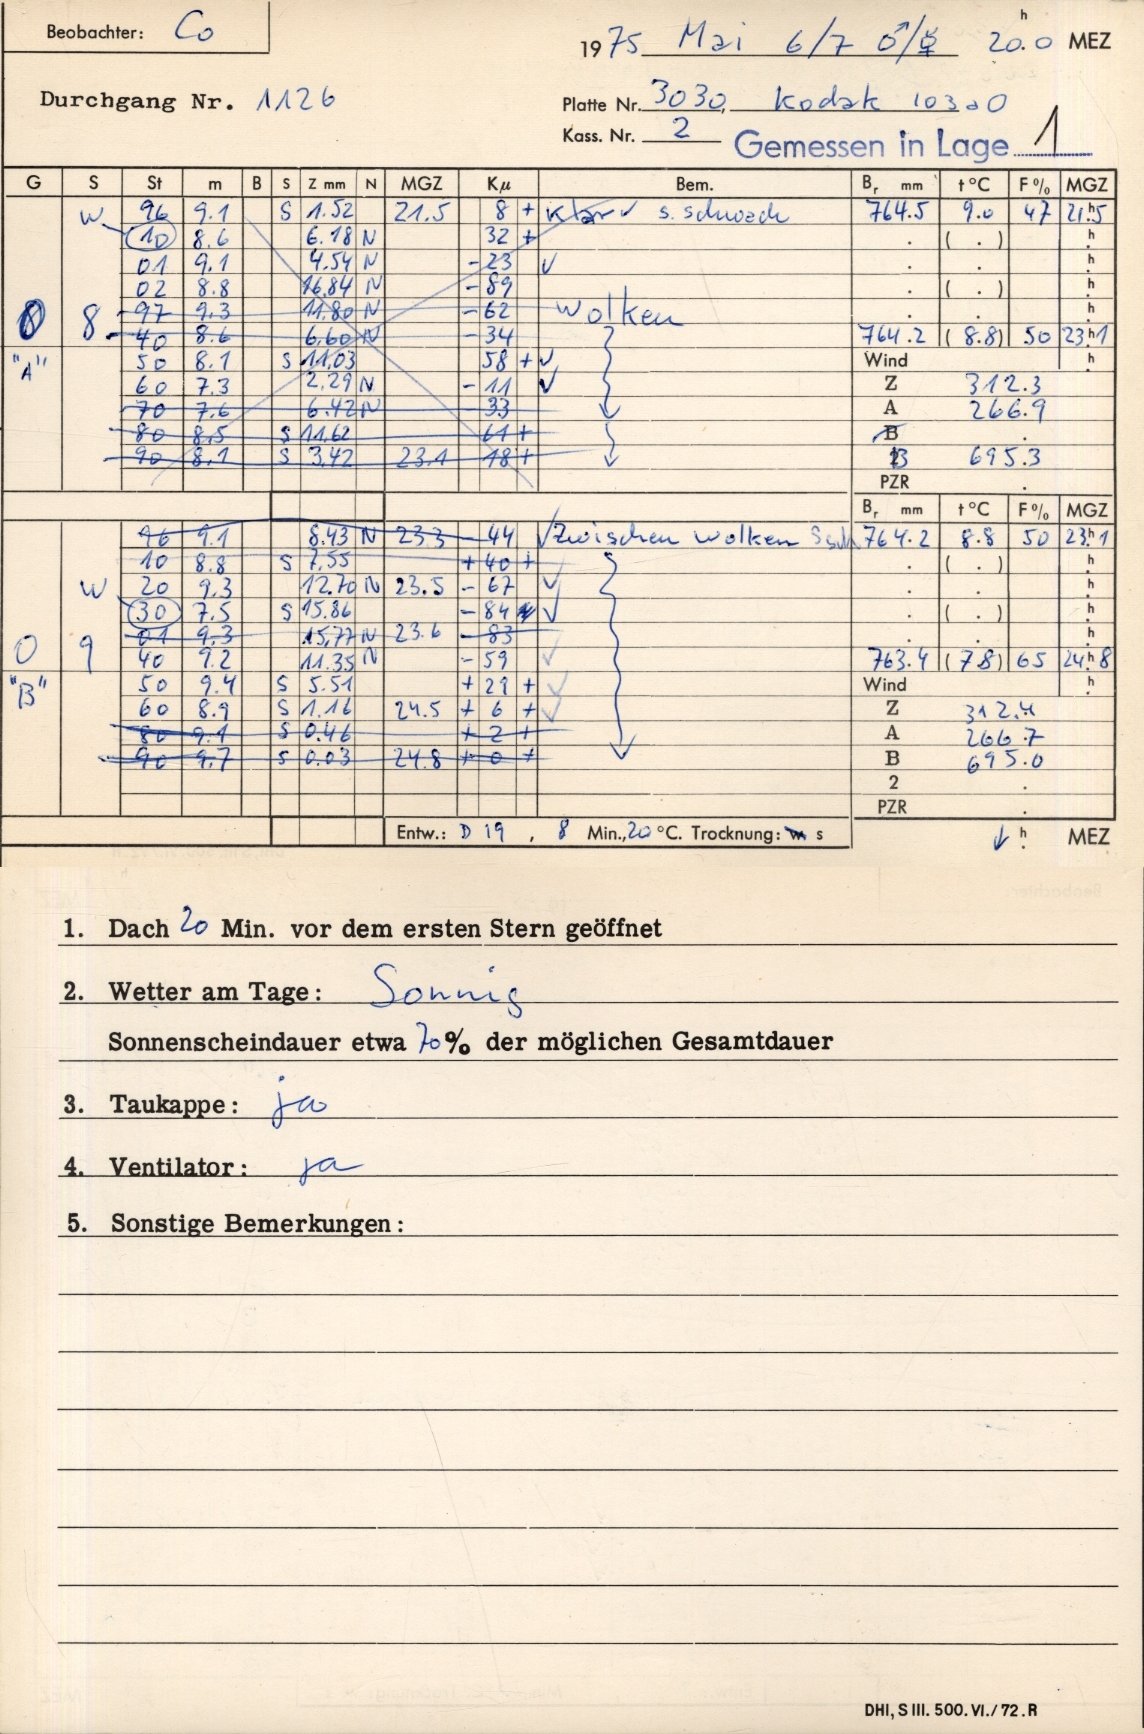 Beobachter: Co
1975 Mai 6/7 ♂/☿ 20.0 h MEZ
Durchgang Nr. 1126
Platte Nr. 3030, Kodak 103a0
Kass. Nr. 2 Gemessen in Lage 1
G S St m B S Z mm N MGZ Kμ Bem. Br mm t °C F% MGZ
W 96 9.1 S 1.52 21.5 8 + klar ✓ s. schwach 764.5 9.0 47 21h5
10 8.6 6.18 N 32 + . ( . ) h
01 9.1 4.54 N - 23 ✓ . . h
02 8.8 16.84 N - 89 . ( . ) h
0 8 97 9.3 11.80 N - 62 Wolken . . h
40 8.6 6.60 N - 34 764.2 ( 8.8) 50 23h1
"A" 50 8.1 S 11.03 58 + ✓ Wind h
60 7.3 2.29 N - 11 ✓ Z 312.3
70 7.6 6.42 N 33 A 266.9
80 8.5 S 11.62 61 + B .
90 8.1 S 3.42 23.1 18 + B 695.3
PZR .
Br mm t °C F% MGZ
96 9.1 8.43 N 23.3 - 44 ✓ Zwischen Wolken S sch 764.2 8.8 50 23h1
10 8.8 S 7.55 + 40 + . ( . ) h
W 20 9.3 12.70 N 23.5 - 67 ✓ . . h
30 7.5 S 15.86 - 84 ✓ . ( . ) h
01 9.3 15.77 N 23.6 - 83 . . h
0 9 40 9.2 11.35 N - 59 ✓ 763.4 (7.8) 65 24h8
"B" 50 9.4 S 5.51 + 29 + ✓ Wind h
60 8.9 S 1.16 24.5 + 6 + ✓ Z 312.4
80 9.1 S 0.46 + 2 + A 266.7
90 9.7 S 0.03 24.8 + 0 + B 695.0
2 .
PZR .
Entw.: D 19 , 8 Min., 20 °C. Trocknung: w s ↓ h MEZ
1. Dach 20 Min. vor dem ersten Stern geöffnet
2. Wetter am Tage: Sonnig
Sonnenscheindauer etwa 70% der möglichen Gesamtdauer
3. Taukappe: ja
4. Ventilator: ja
5. Sonstige Bemerkungen:
DHI, S III. 500. VI./72. R